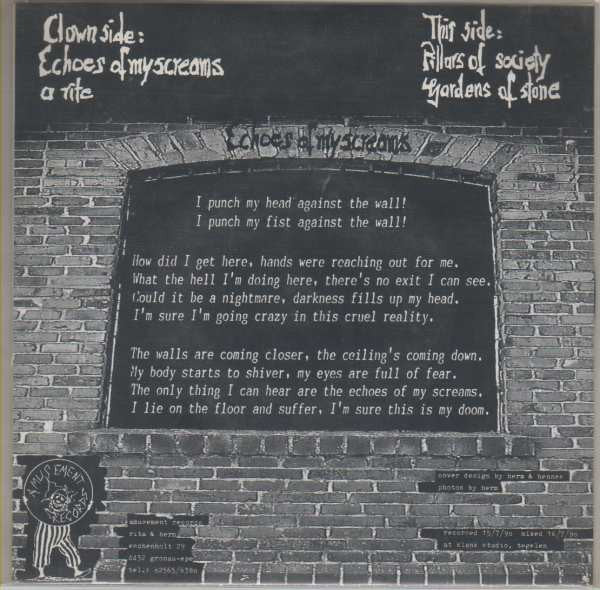 Clown side:
Echoes of my screams
a rite
This side:
Pillars of society
Gardens of stone
Echoes of my screams
I punch my head against the wall!
I punch my fist against the wall!
How did I get here, hands were reaching out for me.
What the hell I'm doing here, there's no exit I can see.
Could it be a nightmare, darkness fills up my head.
I'm sure I'm going crazy in this cruel reality.
The walls are coming closer, the ceiling's coming down.
My body starts to shiver, my eyes are full of fear.
The only thing I can hear are the echoes of my screams.
I lie on the floor and suffer, I'm sure this is my doom.
AMUSEMENT
RECORDS
amusement records
rita & herm
29
tel.:
cover design by herm & hennes
photos by herm
recorded 15/7/90 mixed 16/7/90
at studio, tegelen